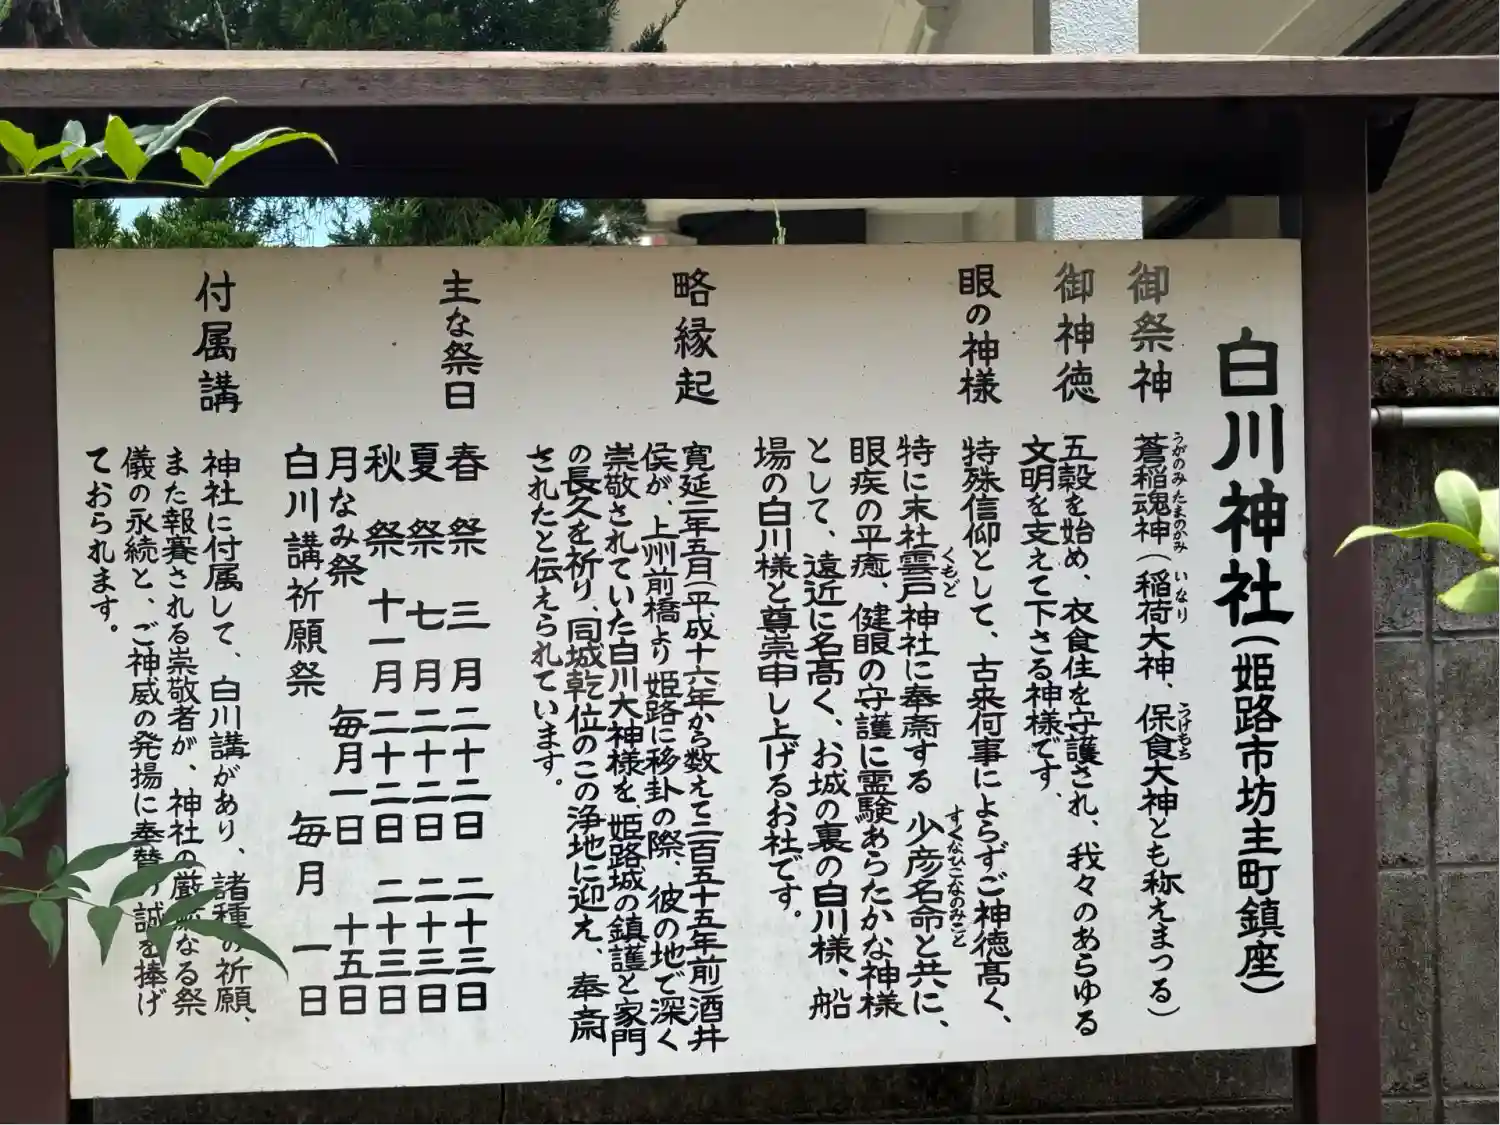 白川神社(姫路市坊主町鎮座)
御祭神
蒼稲魂神(稲荷大神、保食大神とも称えまつる)
うがのみたまのかみ いなり うけもち
御神徳
五穀を始め、衣食住を守護され、我々のあらゆる
文明を支えて下さる神様です。
眼の神様
特殊信仰として、古来何事によらずご神徳高く、
特に末社雲戸神社に奉斎する 少彦名命と共に、
くもど すくなひこなのみこと
眼疾の平癒、健眼の守護に霊験あらたかな神様
として、遠近に名高く、お城の裏の白川様、船
場の白川様と尊崇申し上げるお社です。
略縁起
寛延二年五月(平成十六年から数えて二百五十五年前)酒井
侯が、上州前橋より姫路に移卦の際、彼の地で深く
崇敬されていた白川大神様を、姫路城の鎮護と家門
の長久を祈り、同城乾位のこの浄地に迎え、奉斎
されたと伝えられています。
主な祭日
春 祭 三 月 二十二日 二十三日
夏 祭 七 月 二十二日 二十三日
秋 祭 十一月 二十二日 二十三日
月なみ祭 毎月一日 十五日
白川講祈願祭 毎月 一日
付属講
神社に付属して、白川講があり、諸種の祈願、
また報賽される崇敬者が、神社の厳なる祭
儀の永続と、ご神威の発揚に奉賛誠を捧げ
ておられます。